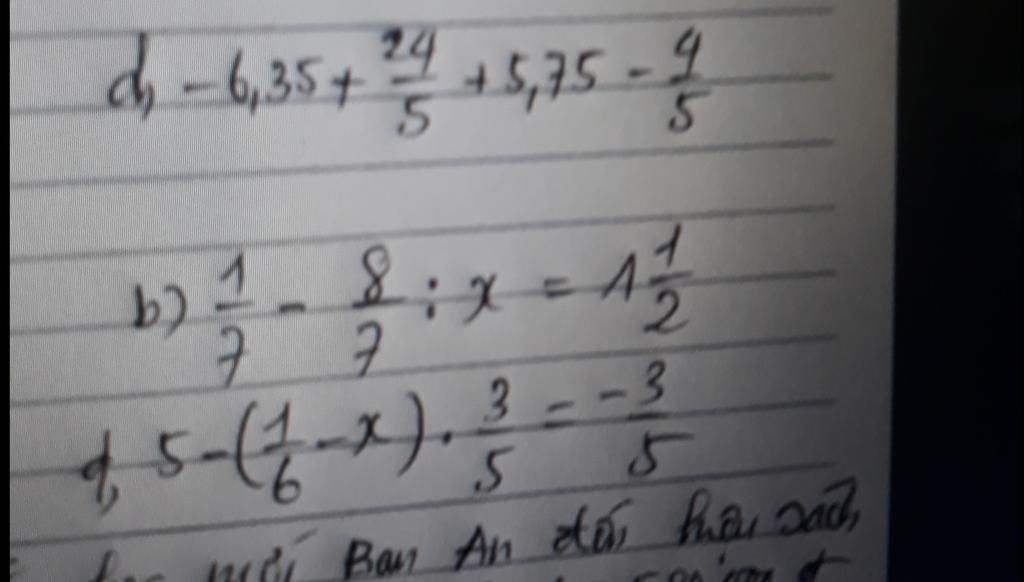 d, -6,35 + 24/5 + 5,75 - 4/5
b) 1/7 - 8/7 : x = 1 1/2
d, 5 - (1/6 - x) . 3/5 = -3/5
Bạn An đến